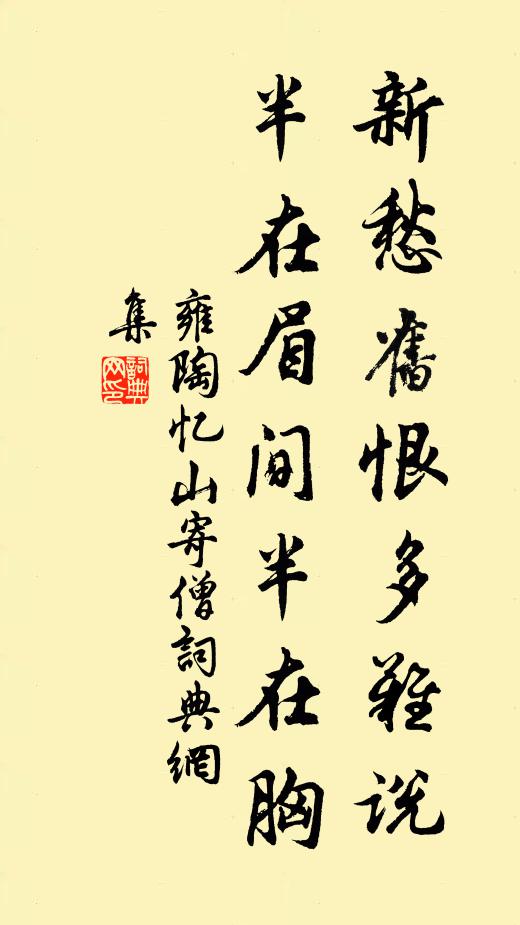 新愁舊恨多难说
半在眉间半在胸
雍陶忆山寄僧詞典網
集
詞典
网印